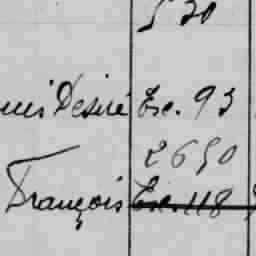 520
uis Désiré Exc. 93
2650
François Exc. 118